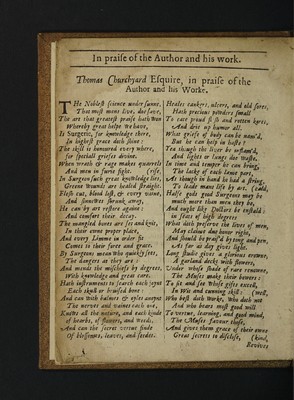 In praise of the Author and his work.
Thomas Churchyard Esquire, in praise of the
Author and his Worke.
THe Noblest science under sunne,
That most men live, doe save,
The art that greatest praise hath won
Whereby great helpe we have,
Is Surgerie, for knowledge there,
In highest grace doth shine:
The skill is honoured every where,
for speciall giftes divine.
When wrath & rage makes quarrels
And men in furie fight. (rise,
In Surgeon such great knowledge lies,
Greene Wounds are healed straight.
Flesh cut, blood lost, & every vaine,
And sinewes shrunk away,
He can by art restore againe:
And comfort their decay.
The mangled bones are set and knit,
In their owne proper place,
And every limme in order fit
Comes to their force and grace.
By Surgeons mean who quickly sees,
The dangers as they are:
And mends the mischiefs by degrees,
With knowledge and great care.
Hath instruments to search each joynt
Each skull or brused bone:
And can with balmes & oyles anoynt
The nerves and vaines each one,
Knows all the nature, and each kinde
of hearbs, of flowers, and weeds,
And can the secret vertue finde
Of blossomes, leaves, and seedes.
Heales cankers, ulcers, and old sores,
Hath precious powders small
To eate proud flesh and rotten kores,
And drie up humor all.
What griefe of body can be nam'd,
But he can help in haste?
Yea though the liver be inflam'd,
And lights or lungs doe waste.
In time and temper he can bring
The lacke of each leane part,
As though in hand he had a string,
To leade mans life by art. (cald,
Halfe gods good Surgeons may be
much more than men they be
And ought like Doctors be install'd
in seats of high degree
What doth preserve the lives of men,
May claime due honor right,
And should be prais'd by tong and pen,
As far as day gives light.
Long studie gives a glorious crowne,
of garland deckt with flowers,
Under whose shade of rare renowne,
The Muses makes their bowres:
To sit and see whose giftes exceed,
In Wit and cunning skill:
Who best doth worke, Who doth wel
And who beares most good will
To vertue, learning, and good mind,
The Muses favour those,
And gives them grace of their owne
Great secrets to disclose, (kind,
Revives